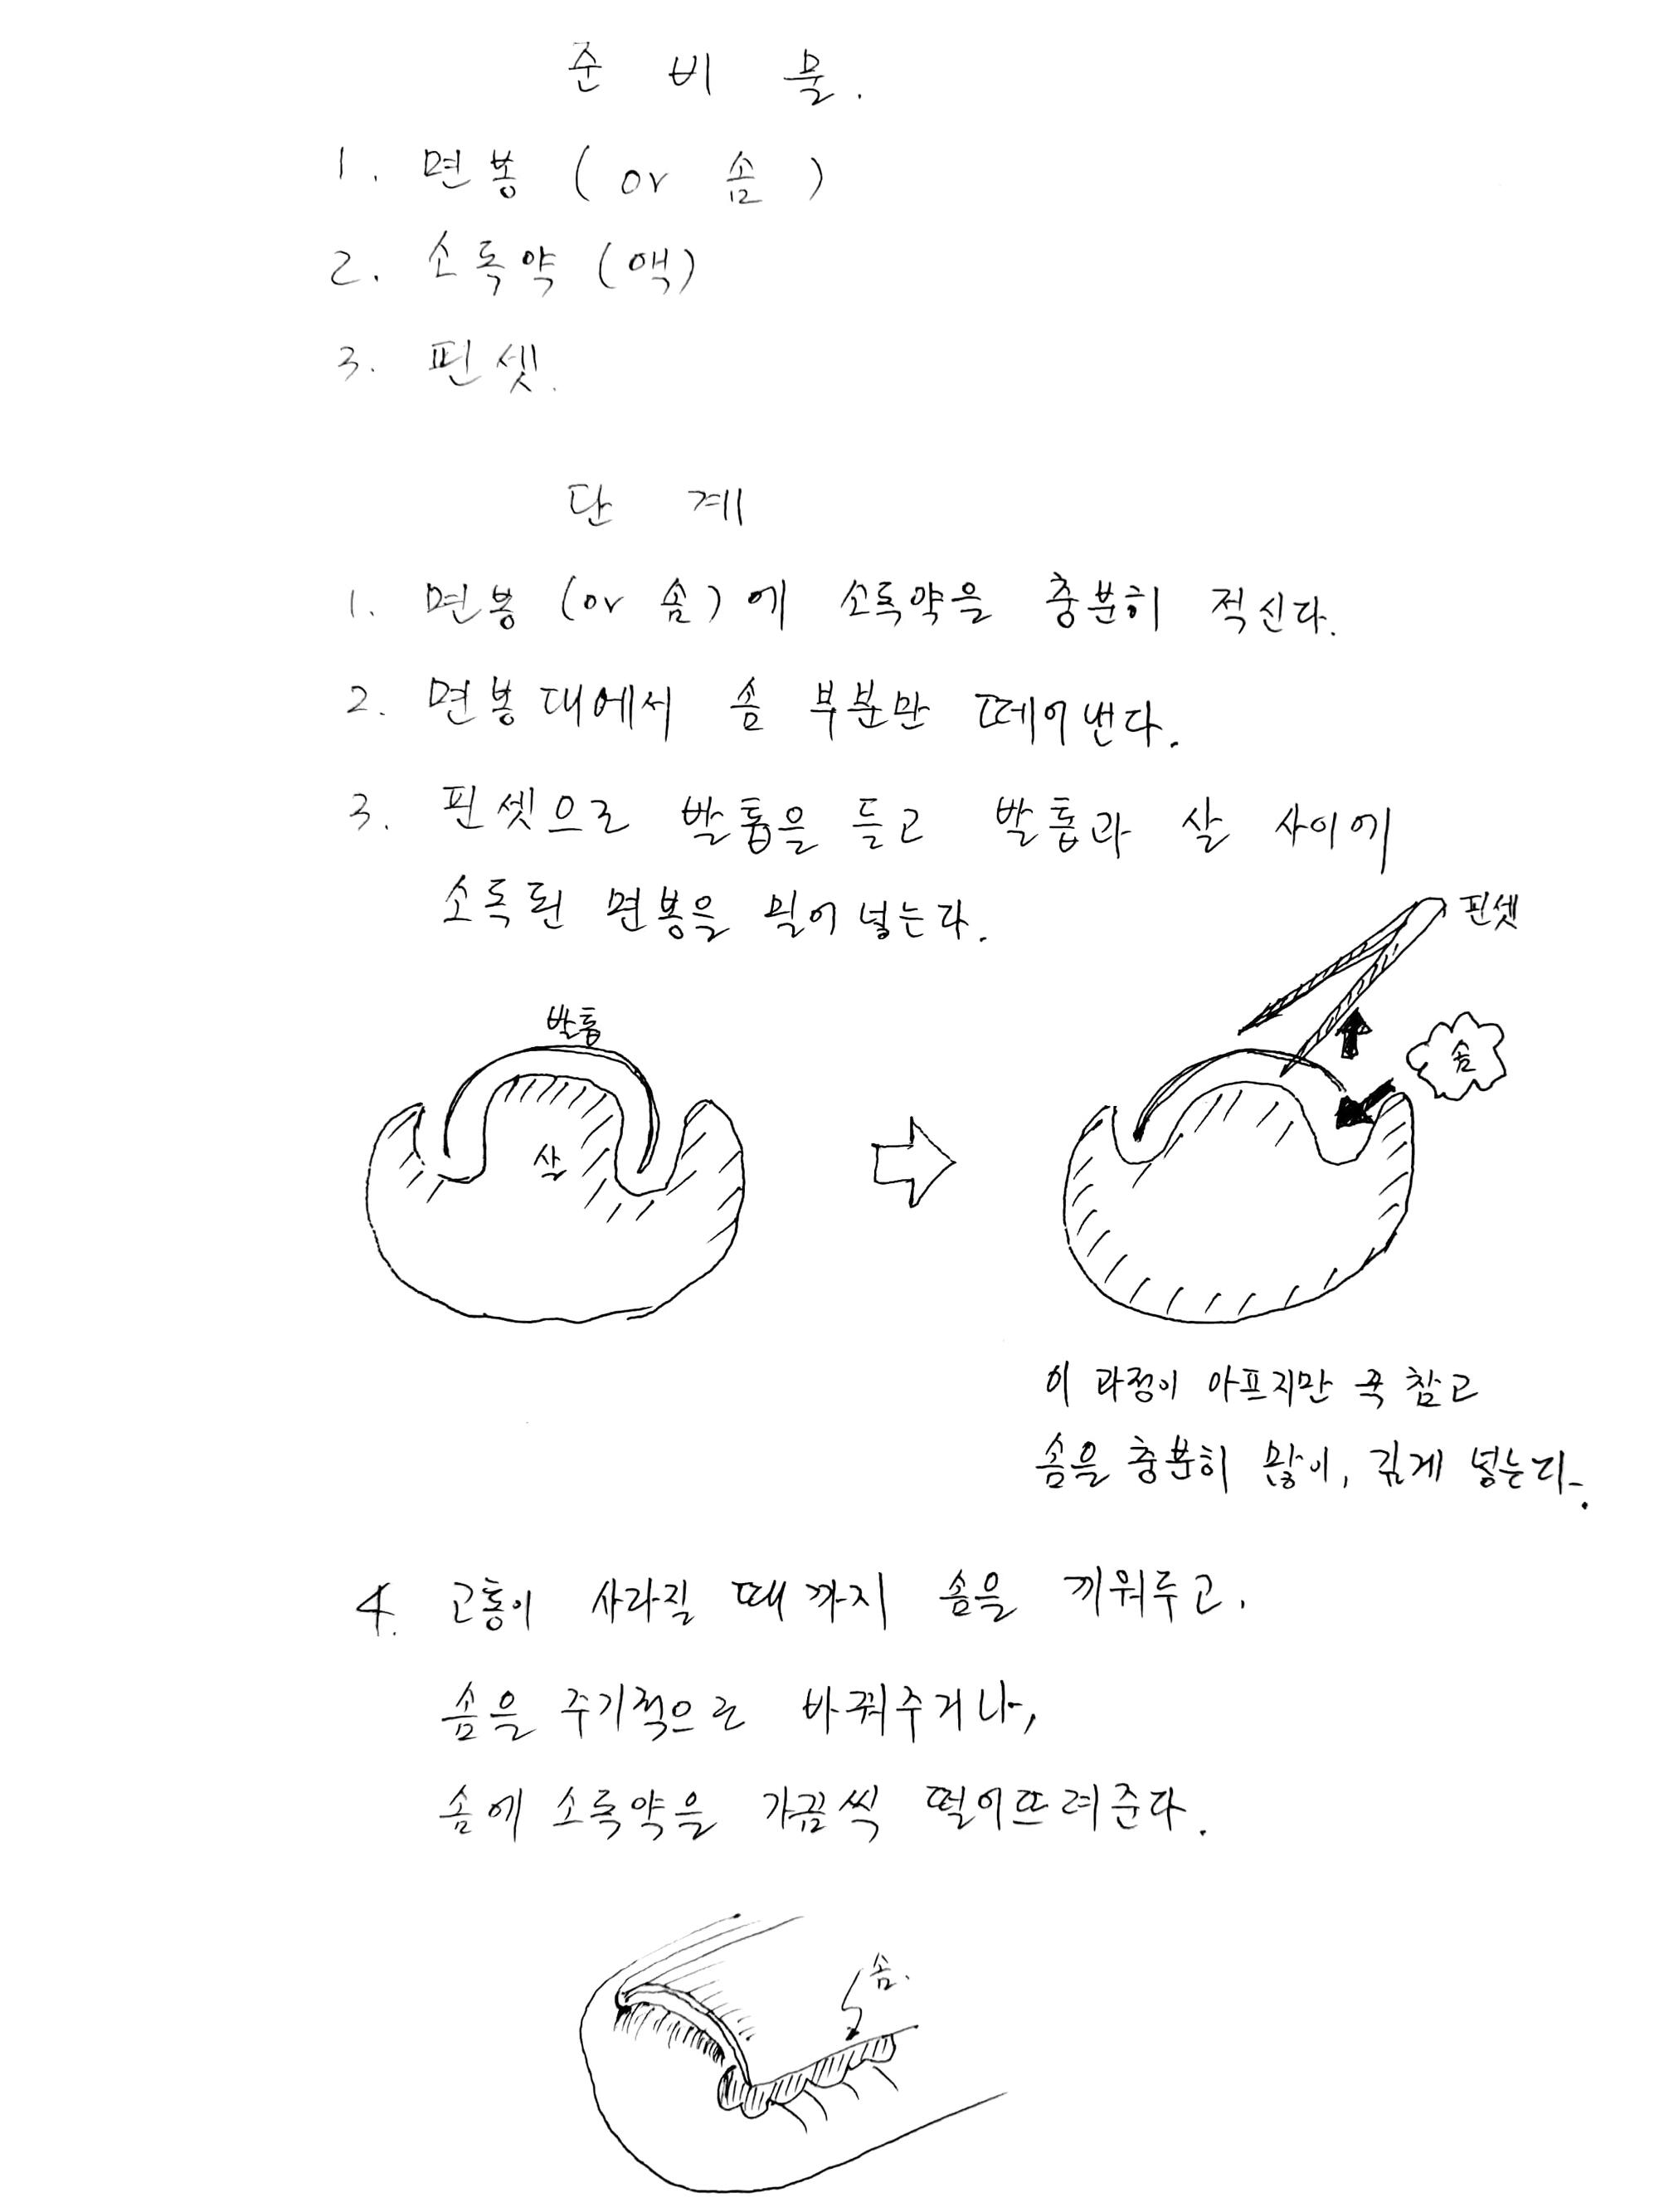 준 비 물.
1. 면봉 (or 솜)
2. 소독약 (액)
3. 핀셋.
단 계
1. 면봉 (or 솜)에 소독약을 충분히 적신다.
2. 면봉대에서 솜 부분만 떼어낸다.
3. 핀셋으로 발톱을 들고 발톱과 살 사이에
소독된 면봉을 밀어 넣는다.
핀셋
발톱
솜
살
이 과정이 아프지만 꾹 참고
솜을 충분히 많이, 깊게 넣는다.
4. 고통이 사라질 때까지 솜을 끼워두고,
솜을 주기적으로 바꿔주거나,
솜에 소독약을 가끔씩 떨어뜨려준다.
솜.